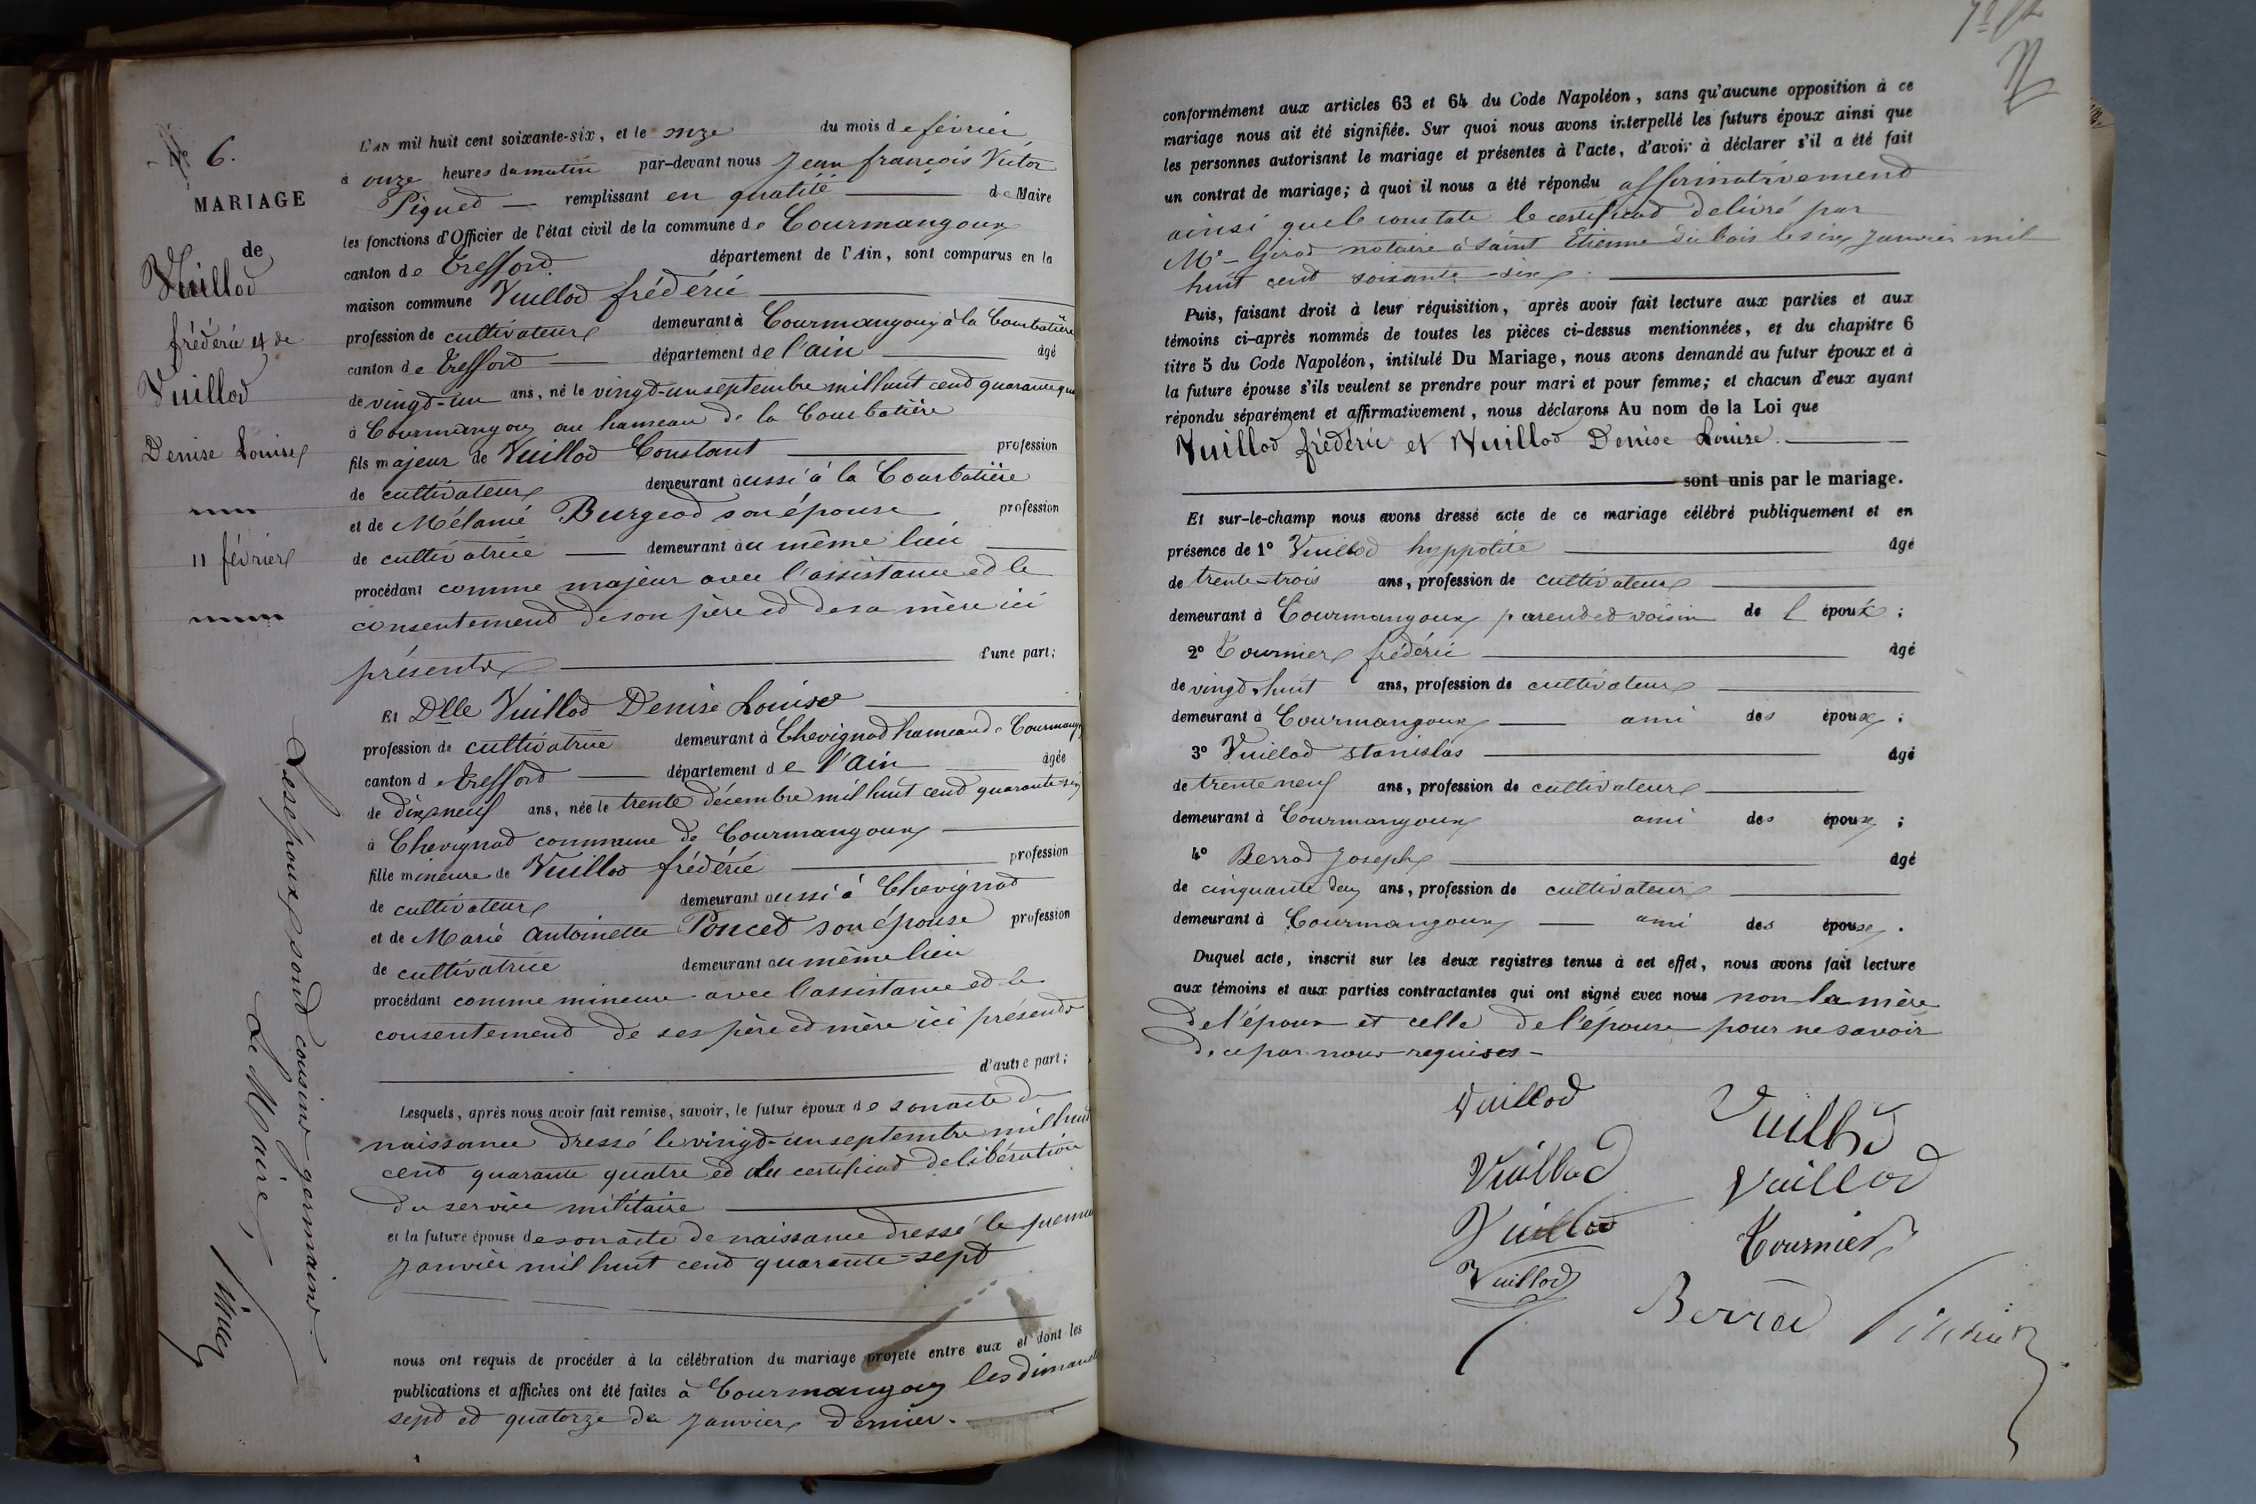 N° 6.
MARIAGE
de
Vuillod
frédéric et de
Vuillod
Denise Louise
11 février
Les époux sont cousins germains.
Le Maire,
L'AN mil huit cent soixante-six, et le onze du mois de février
à onze heures du matin par-devant nous Jean françois Victor
Piqued remplissant en qualité de Maire
les fonctions d'Officier de l'état civil de la commune de Courmangoux
canton de Trefford département de l'Ain, sont comparus en la
maison commune Vuillod frédéric
profession de cultivateur demeurant à Courmangoux à la Courbatière
canton de Trefford département de l'ain âgé
de vingd-un ans, né le vingd-un septembre mil huit cend quarante qua
à Courmangoux au hameau de la Courbatière
fils majeur de Vuillod Constant profession
de cultivateur demeurant aussi à la Courbatière
et de Mélanie Burgeod son épouse profession
de cultivatrice demeurant au même lieu
procédant comme majeur avec l'assistance ed le
consentemend de son père ed de sa mère ici
présents d'une part;
Et Dlle Vuillod Denise Louise
profession de cultivatrice demeurant à Chevignad hameau de Courmang
canton de Trefford département de l'ain âgée
de dix neuf ans, née le trente décembre mil huit cend quarante-six
à Chevignad commune de Courmangoux
fille mineure de Vuillod frédéric profession
de cultivateur demeurant aussi à Chevignad
et de Marie Antoinette Ponced son épouse profession
de cultivatrice demeurant au même lieu
procédant comme mineure avec l'assistance ed le
consentemend de ses père ed mère ici présends
d'autre part;
Lesquels, après nous avoir fait remise, savoir, le futur époux de son acte de
naissance dressé le vingd-un septembre mil huid
cend quarante quatre ed du certificad de libération
du service militaire
et la future épouse de son acte de naissance dressé le premier
janvier mil huit cend quarante-sept
nous ont requis de procéder à la célébration du mariage projeté entre eux et dont les
publications et affiches ont été faites à Courmangoux les dimanch
sept ed quatorze du janvier dernier.
conformément aux articles 63 et 64 du Code Napoléon, sans qu'aucune opposition à ce
mariage nous ait été signifiée. Sur quoi nous avons interpellé les futurs époux ainsi que
les personnes autorisant le mariage et présentes à l'acte, d'avoir à déclarer s'il a été fait
un contrat de mariage; à quoi il nous a été répondu affirmativemend
ainsi que le constate le certificad délivré par
Me Girod notaire à Saint Etienne du bois le six janvier mil
huit cend soixante-six.
Puis, faisant droit à leur réquisition, après avoir fait lecture aux parties et aux
témoins ci-après nommés de toutes les pièces ci-dessus mentionnées, et du chapitre 6
titre 5 du Code Napoléon, intitulé Du Mariage, nous avons demandé au futur époux et à
la future épouse s'ils veulent se prendre pour mari et pour femme; et chacun d'eux ayant
répondu séparément et affirmativement, nous déclarons Au nom de la Loi que
Vuillod frédéric et Vuillod Denise Louise.
sont unis par le mariage.
Et sur-le-champ nous avons dressé acte de ce mariage célébré publiquement et en
présence de 1° Vuillod hyppolite âgé
de trente-trois ans, profession de cultivateur
demeurant à Courmangoux parend ed voisin de l époux;
2° Tournier frédéric âgé
de vingd-huit ans, profession de cultivateur
demeurant à Courmangoux ami des époux;
3° Vuillod Stanislas âgé
de trente neuf ans, profession de cultivateur
demeurant à Courmangoux ami des époux;
4° Berrod Joseph âgé
de cinquante deux ans, profession de cultivateur
demeurant à Courmangoux ami des époux.
Duquel acte, inscrit sur les deux registres tenus à cet effet, nous avons fait lecture
aux témoins et aux parties contractantes qui ont signé avec nous non la mère
de l'époux et celle de l'épouse pour ne savoir
de ce par nous requises.
Vuillod Vuillod
Vuillod Vuillod
Vuillod Tournier
Vuillod
Berrod